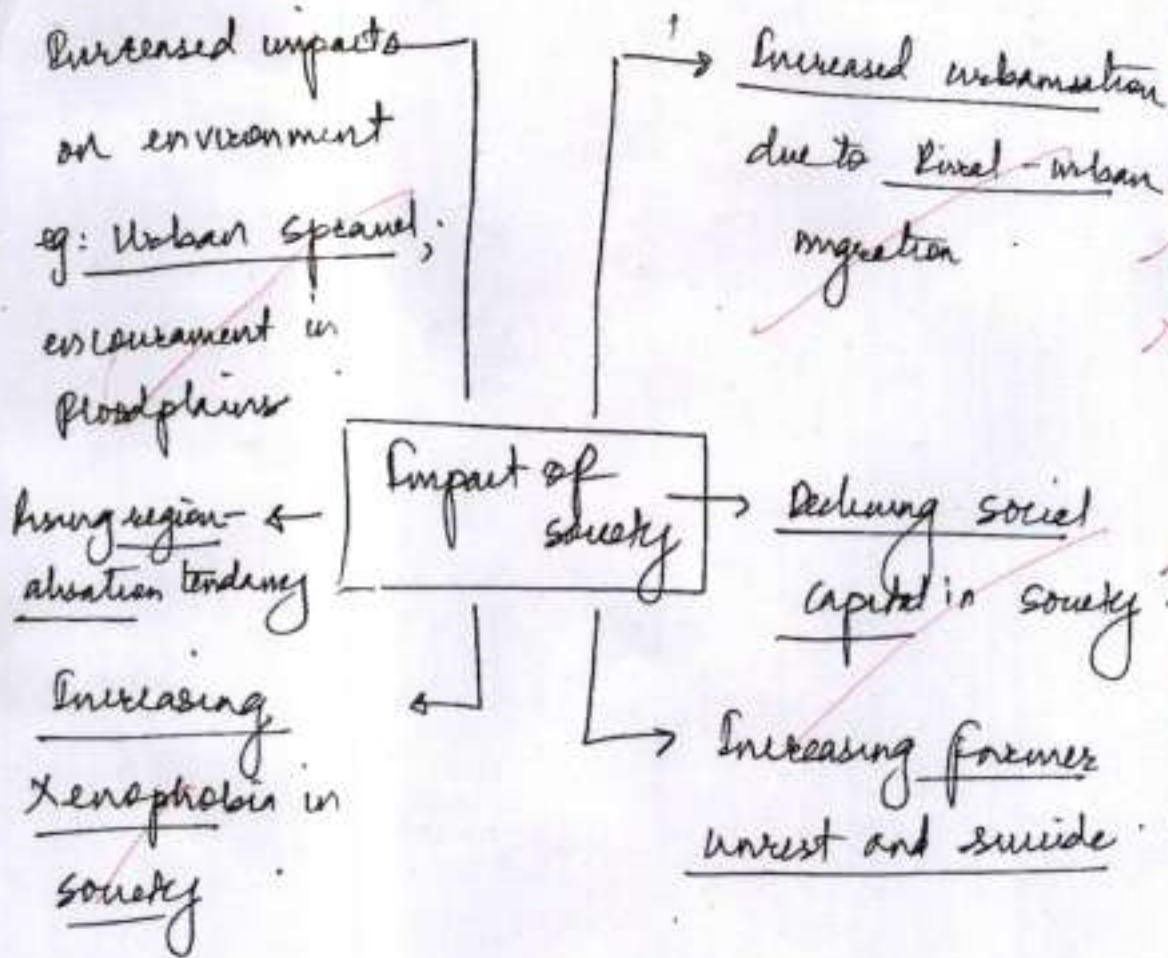 Increased impacts
on environment
eg: Urban sprawl;
encourament in
floodplains
Rising region-
alisation tendancy
Increasing
Xenophobia in
society
Impact of
society
Increased urbanisation
due to Rural-urban
migration
Declining social
capital in society
Increasing farmer
unrest and suicide